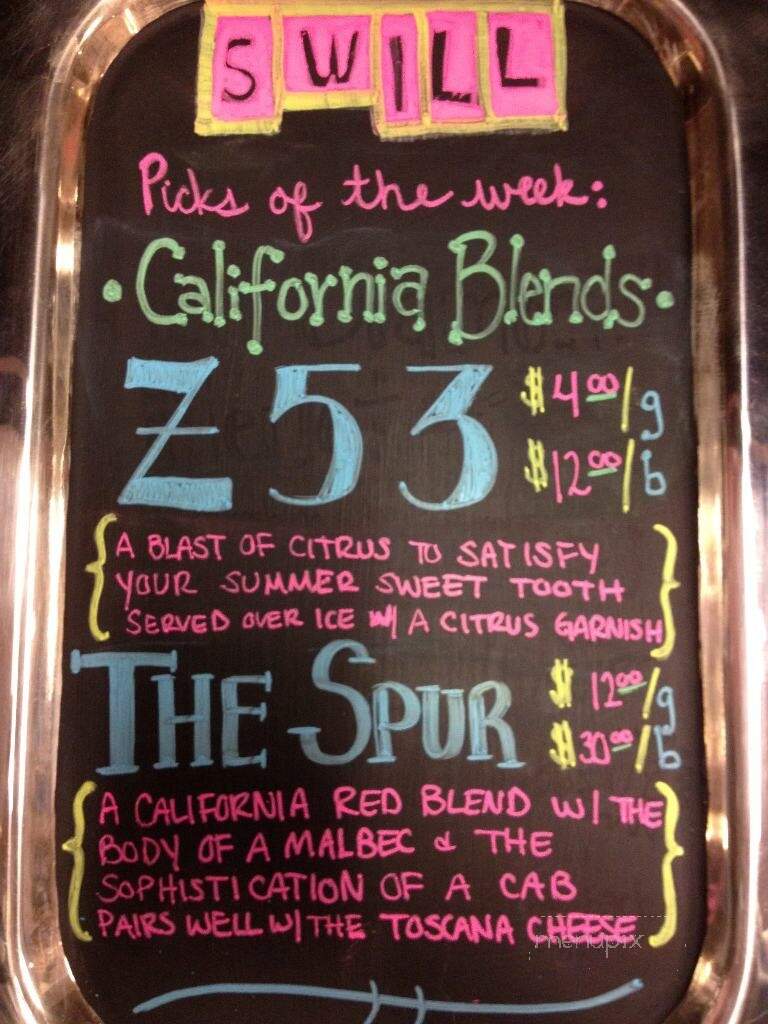 SWILL
Picks of the week:
· California Blends ·
Z53
$4.00/g
$12.00/b
{ A BLAST OF CITRUS TO SATISFY
YOUR SUMMER SWEET TOOTH
SERVED OVER ICE W/ A CITRUS GARNISH }
THE SPUR
$12.00/g
$30.00/b
{ A CALIFORNIA RED BLEND W/ THE
BODY OF A MALBEC & THE
SOPHISTICATION OF A CAB
PAIRS WELL W/ THE TOSCANA CHEESE }
menupix